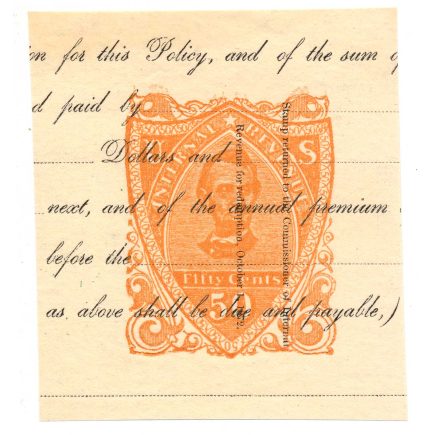 on for this Policy, and of the sum o
d paid by
Dollars and
next, and of the annual premium
before the
as above shall be due and payable,)
U S
INTERNAL REVENUE
Fifty Cents
50
Stamp returned to the Commissioner of Internal
Revenue for redemption, October